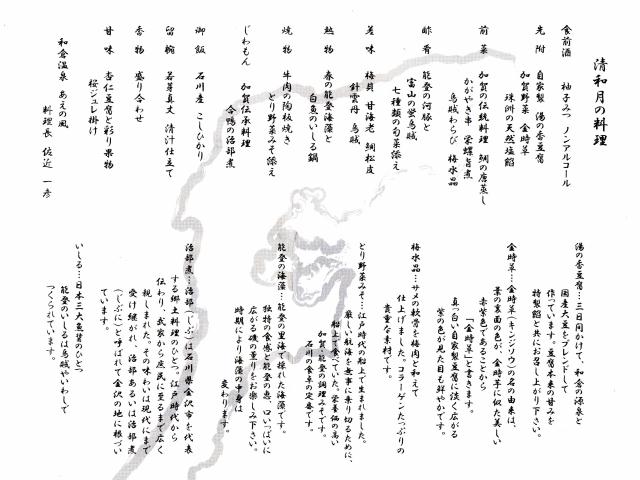 清和月の料理
食前酒 柚子みつ ノンアルコール
先附 自家製 湯の香豆腐
加賀野菜 金時草
珠洲の天然塩餡
前菜 加賀の伝統料理 鯛の唐蒸し
かがやき串 栄螺旨煮
烏賊わらび 梅水晶
酢肴 能登の河豚と
富山の蛍烏賊
七種類の旬菜添え
造味 梅貝 甘海老 鯛松皮
針雲丹 烏賊
熱物 春の能登海藻と
白魚のいしる鍋
焼物 牛肉の陶板焼き
とり野菜みそ添え
じわもん 加賀伝承料理
合鴨の治部煮
御飯 石川産 こしひかり
留椀 若芽真丈 清汁仕立て
香物 盛り合わせ
甘味 杏仁豆腐と彩り果物
桜ジュレ掛け
和倉温泉 あえの風
料理長 佐近 一彦
湯の香豆腐…三日間かけて、和倉の源泉と
国産大豆をブレンドして
作っています。豆腐本来の甘みを
特製餡と共にお召し上がり下さい。
金時草…金時草(キンジソウ)の名の由来は、
葉の裏面の色が、金時芋に似た美しい
赤紫色であることから
「金時草」と書きます。
真っ白い自家製豆腐に淡く広がる
紫の色が見た目も鮮やかです。
梅水晶…サメの軟骨を梅肉と和えて
仕上げました。コラーゲンたっぷりの
貴重な素材です。
とり野菜みそ…江戸時代の船上で生まれました。
厳しい航海を無事に乗り切るために、
船上で食べていた、栄養価の高い
加賀・能登の調理みそです。
石川の食卓の定番です。
能登の海藻…能登の里海で採れた海藻です。
独特の食感と能登の恵、口いっぱいに
広がる磯の薫りをお楽しみ下さい。
時期により海藻の中身は
変わります。
治部煮…治部(じぶ)は石川県金沢市を代表
する郷土料理のひとつ。江戸時代から
伝わり、武家から庶民に至るまで広く
親しまれた。その味わいは現代にまで
受け継がれ、治部あるいは治部煮
(じぶに)と呼ばれて金沢の地に根づい
ています。
いしる…日本三大魚醤のひとつ
能登のいしるは烏賊やいわしで
つくられています。